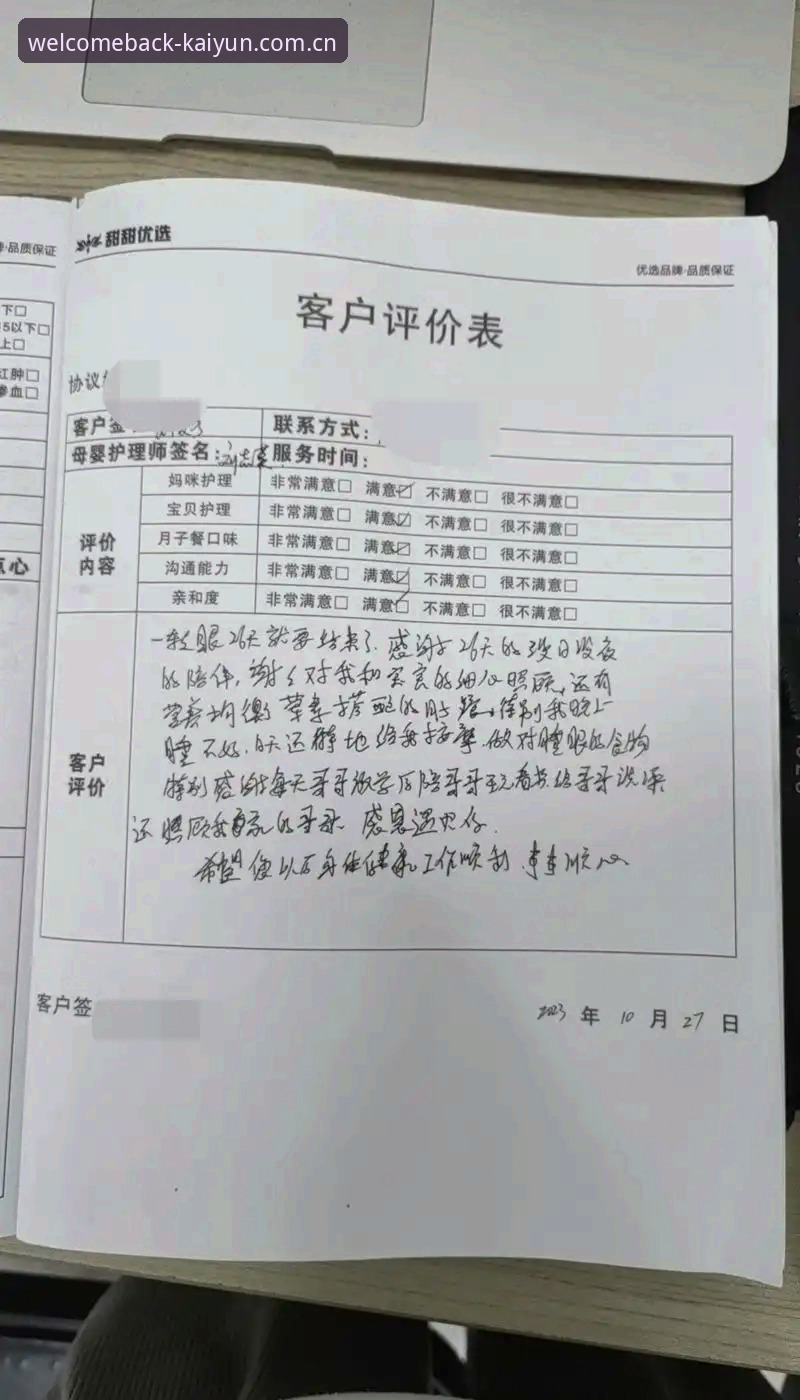 welcomeback-kaiyun.com.cn
甜甜优选
品质保证
优选品牌·品质保证
下□
5以下□
上□
红肿□
渗血□
点心
客户评价表
协议
客户签
联系方式:
母婴护理师签名:
服务时间:
评价内容
妈咪护理 非常满意□ 满意☑ 不满意□ 很不满意□
宝贝护理 非常满意□ 满意☑ 不满意□ 很不满意□
月子餐口味 非常满意□ 满意☑ 不满意□ 很不满意□
沟通能力 非常满意□ 满意☑ 不满意□ 很不满意□
亲和度 非常满意□ 满意☑ 不满意□ 很不满意□
客户评价
一转眼26天就要结束了.感谢26天的没日没夜
的陪伴,谢谢对我和宝宝的细心照顾,还有
营养均衡荤素搭配的月子餐,特别我晚上
睡不好,白天还给我按摩,做对睡眠的食物
特别感谢每天哥哥放学后陪哥哥玩看书给哥哥
还照顾我的哥哥 感恩遇见你.
希望您以后身体健康,工作顺利,事事顺心
客户签
2023 年 10 月 27 日